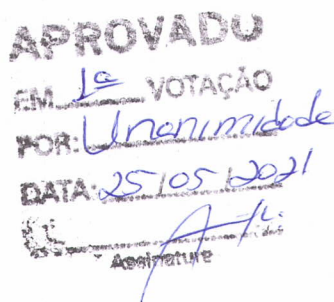 APROVADO
EM 1ª VOTAÇÃO
POR: Unanimidade
DATA: 25/05/2021
Assinatura